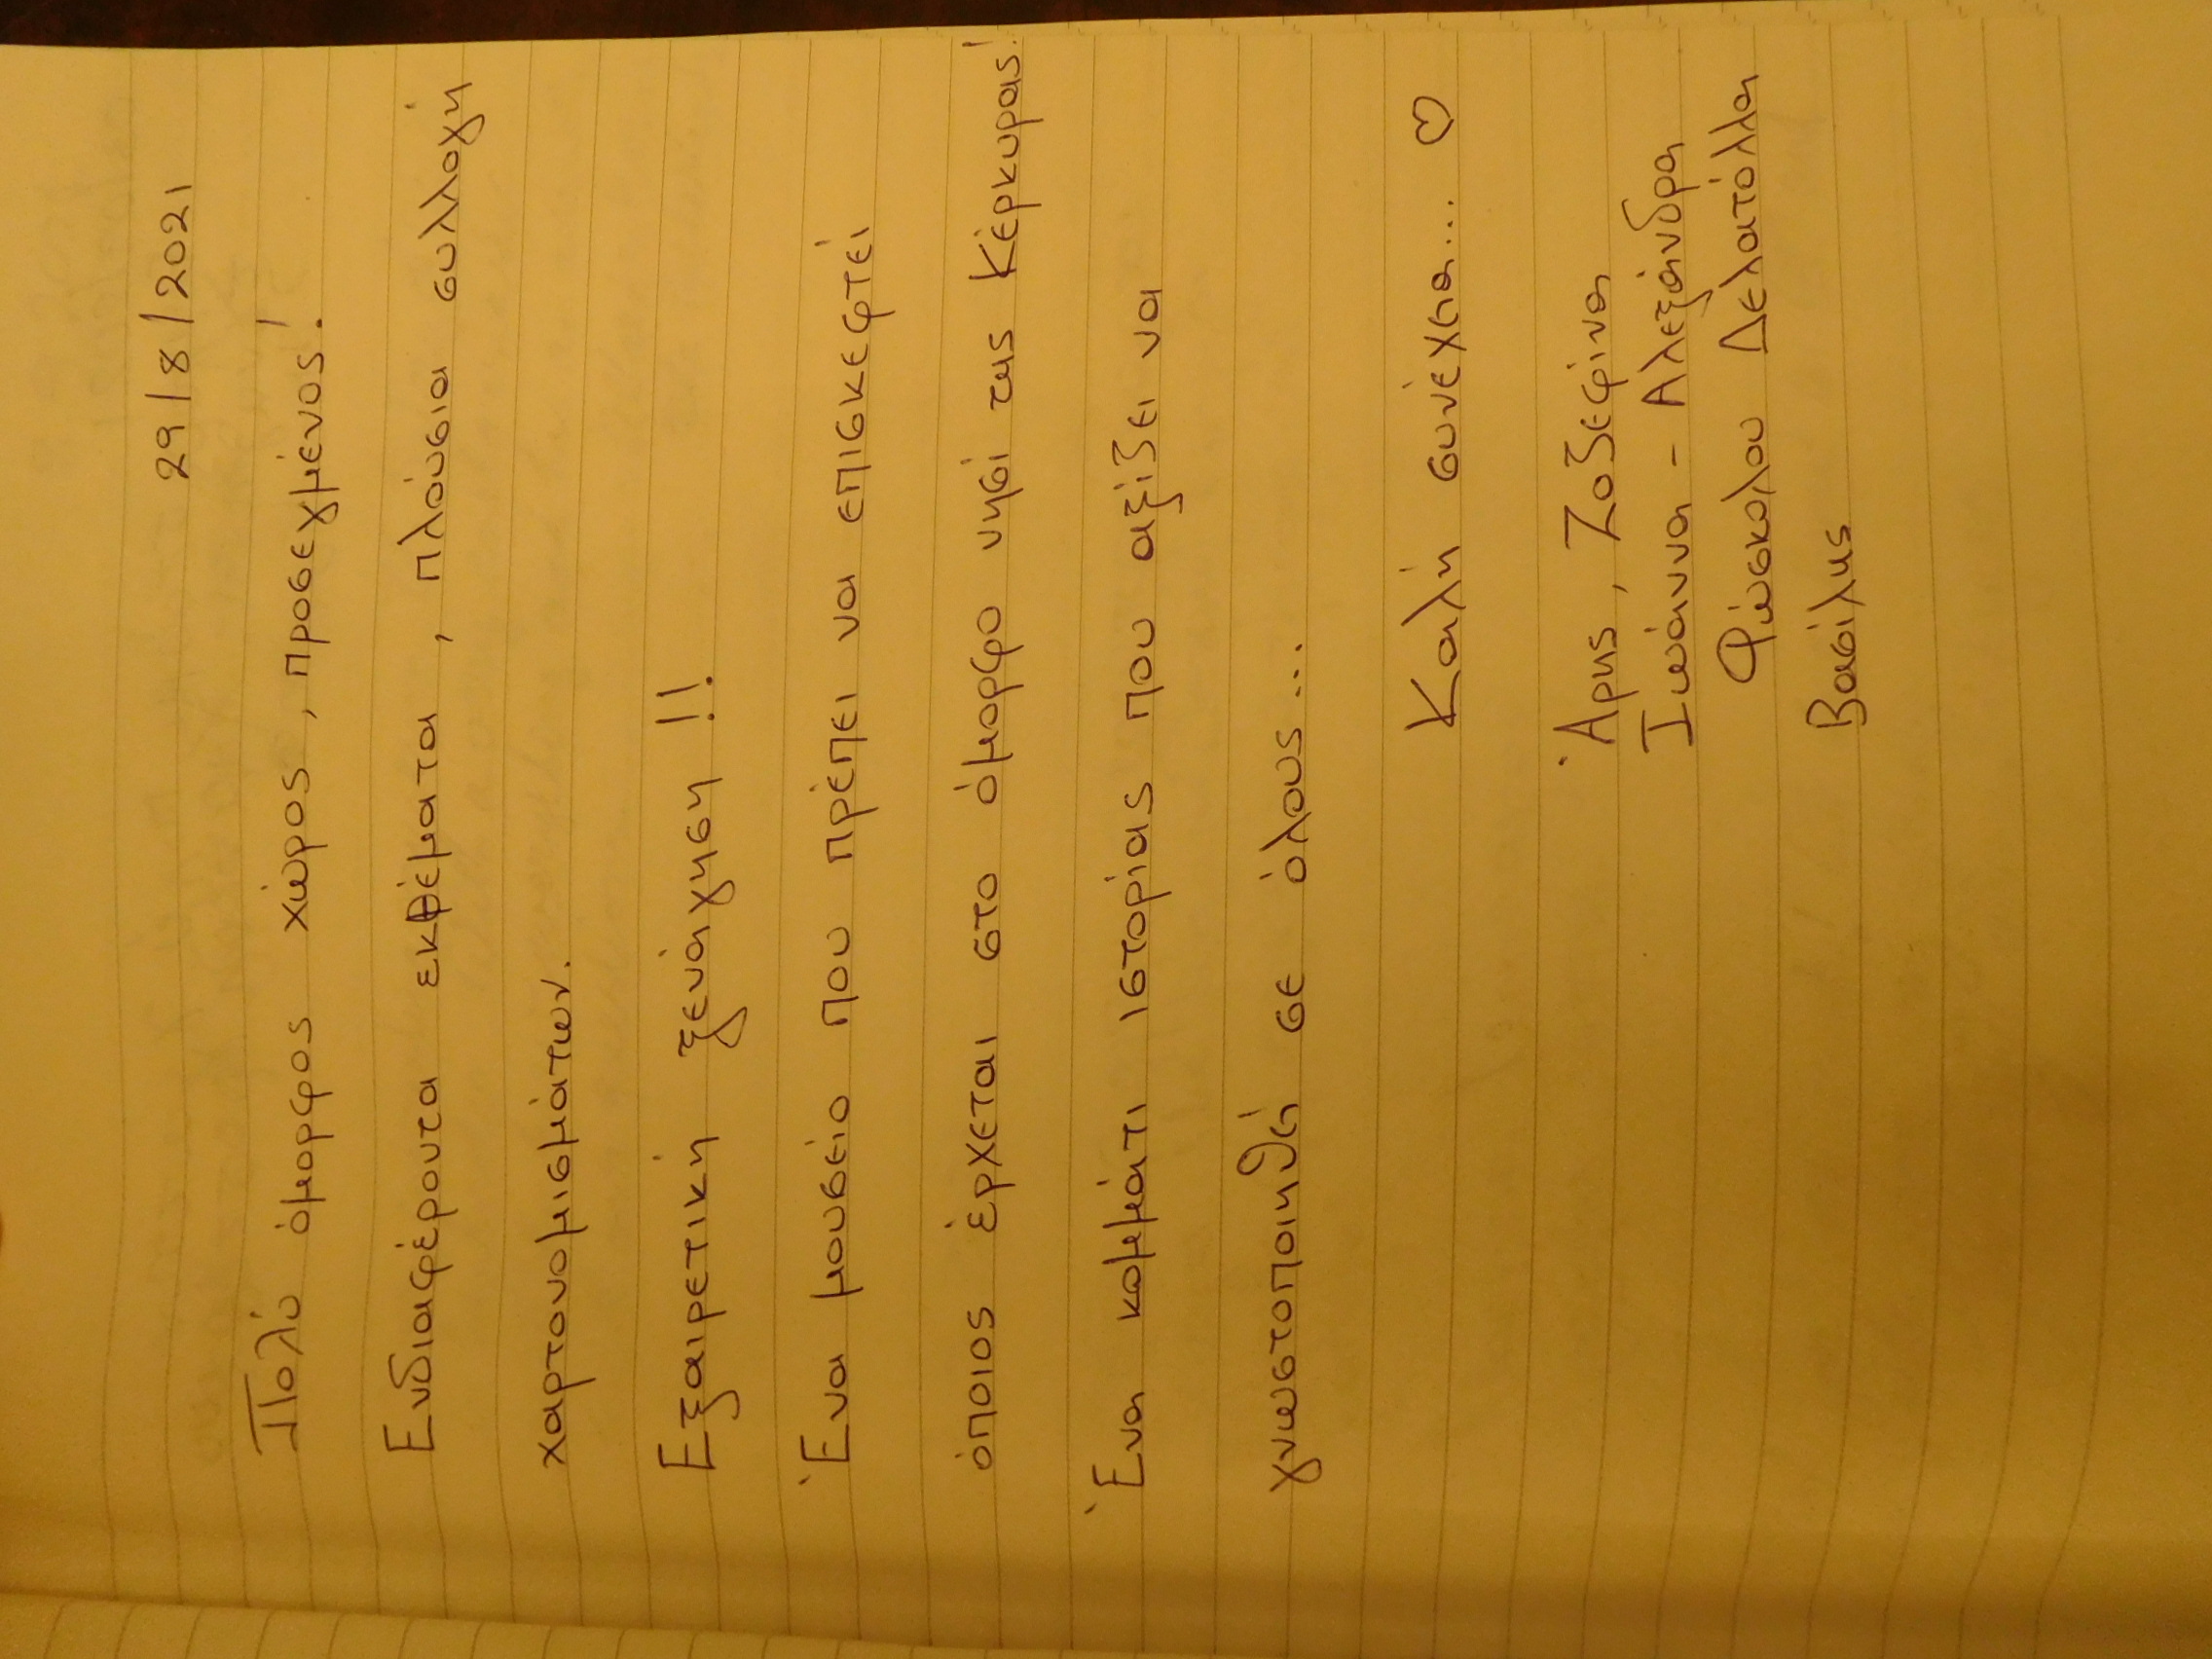 29/8/2021
Πολύ όμορφος χώρος, προσεγμένος!
Ενδιαφέροντα εκθέματα, πλούσια συλλογή
χαρτονομισμάτων.
Εξαιρετική ξενάγηση!!
Ένα μουσείο που πρέπει να επισκεφτεί
όποιος έρχεται στο όμορφο νησί της Κέρκυρας!
Ένα κομμάτι ιστορίας που αξίζει να
γνωστοποιηθεί σε όλους...
Καλή συνέχεια... ♡
Άρης, Ζοζεφίνα
Ιωάννα - Αλεξάνδρα
Φώσκολου Δελατόλλα
Βασίλης